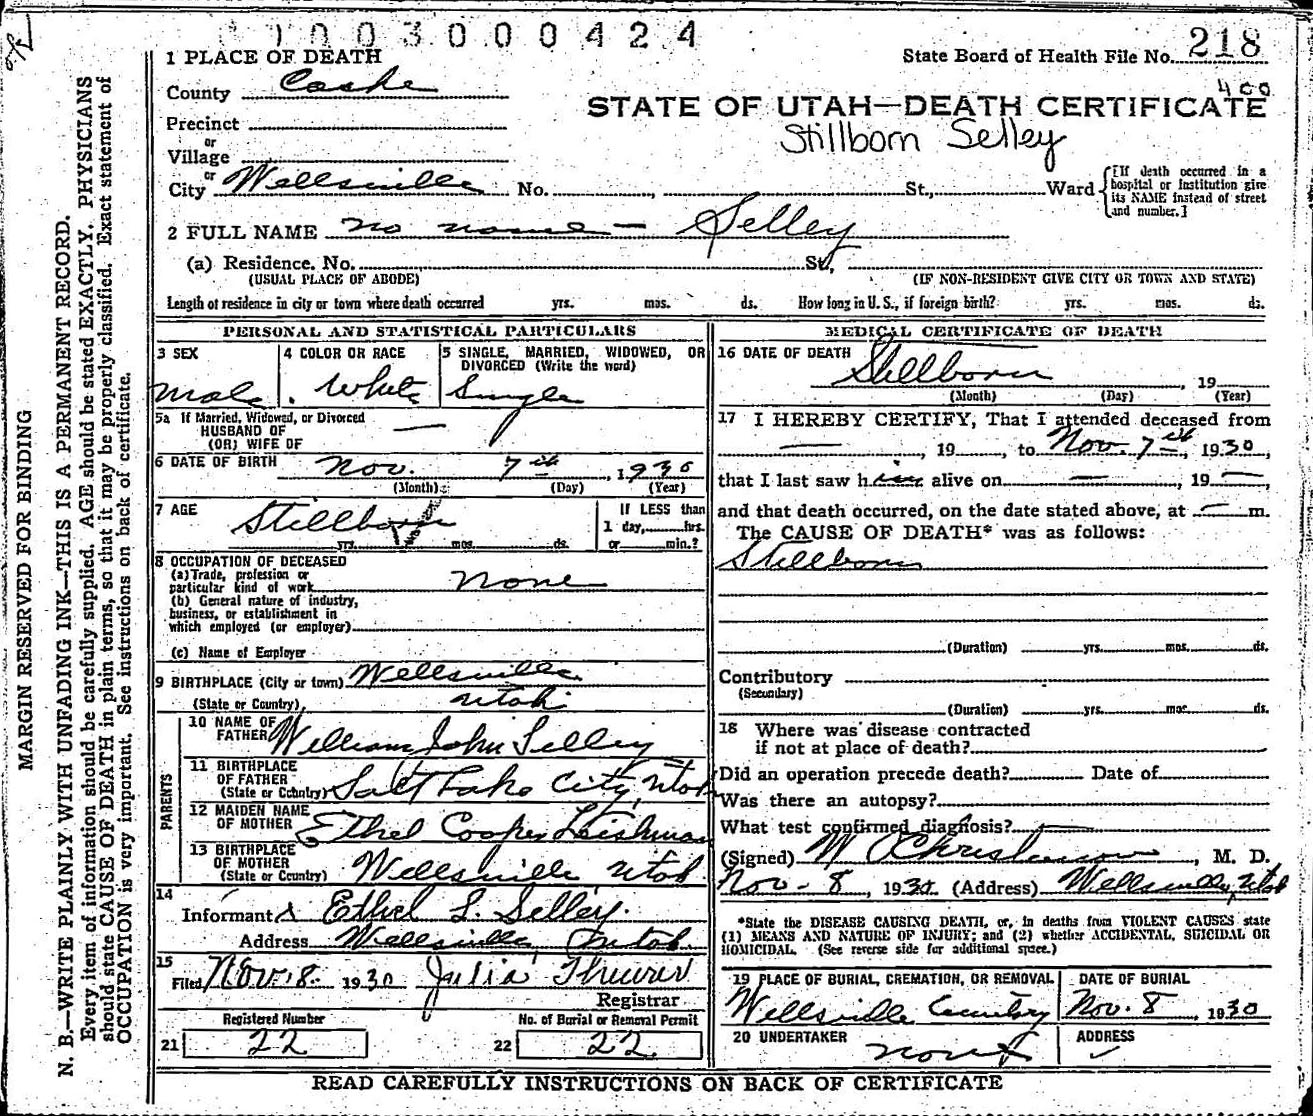 1003000424
1 PLACE OF DEATH
State Board of Health File No. 218
County Cache
400
STATE OF UTAH—DEATH CERTIFICATE
Precinct
Stillborn Selley
or
Village
or
City Wellsville No. , St., Ward
[If death occurred in a
hospital or institution give
its NAME instead of street
and number.]
2 FULL NAME no name — Selley
(a) Residence. No. St.,
(USUAL PLACE OF ABODE) (IF NON-RESIDENT GIVE CITY OR TOWN AND STATE)
Length of residence in city or town where death occurred yrs. mos. ds. How long in U. S., if foreign birth? yrs. mos. ds.
PERSONAL AND STATISTICAL PARTICULARS
3 SEX 4 COLOR OR RACE 5 SINGLE, MARRIED, WIDOWED, OR
DIVORCED (Write the word)
Male. White Single
5a If Married, Widowed, or Divorced
HUSBAND OF —
(OR) WIFE OF
6 DATE OF BIRTH Nov. 7th, 1930
(Month) (Day) (Year)
7 AGE Stillborn
yrs. mos. ds.
If LESS than
1 day, hrs.
or min.?
8 OCCUPATION OF DECEASED
(a) Trade, profession or
particular kind of work None
(b) General nature of industry,
business, or establishment in
which employed (or employer)
(c) Name of Employer
9 BIRTHPLACE (City or town) Wellsville
(State or Country) Utah
PARENTS
10 NAME OF
FATHER William John Selley
11 BIRTHPLACE
OF FATHER
(State or Country) Salt Lake City, Utah
12 MAIDEN NAME
OF MOTHER Ethel Cooper Leishman
13 BIRTHPLACE
OF MOTHER
(State or Country) Wellsville Utah
14
Informant Ethel L. Selley.
Address Wellsville Utah
15
Filed Nov. 8. 1930 Julia Threurer
Registrar
Registered Number No. of Burial or Removal Permit
21 22 22 22
MEDICAL CERTIFICATE OF DEATH
16 DATE OF DEATH Stillborn , 19
(Month) (Day) (Year)
17 I HEREBY CERTIFY, That I attended deceased from
— , 19 , to Nov. 7th, 1930,
that I last saw him alive on — , 19 —,
and that death occurred, on the date stated above, at — m.
The CAUSE OF DEATH* was as follows:
Stillborn
(Duration) yrs. mos. ds.
Contributory
(Secondary)
(Duration) yrs. mos. ds.
18 Where was disease contracted
if not at place of death?
Did an operation precede death? Date of
Was there an autopsy?
What test confirmed diagnosis? —
(Signed) W O Christenson, M. D.
Nov - 8, 1930 (Address) Wellsville, Utah
*State the DISEASE CAUSING DEATH, or, in deaths from VIOLENT CAUSES state
(1) MEANS AND NATURE OF INJURY; and (2) whether ACCIDENTAL, SUICIDAL OR
HOMICIDAL. (See reverse side for additional space.)
19 PLACE OF BURIAL, CREMATION, OR REMOVAL DATE OF BURIAL
Wellsville Cemetery Nov. 8, 1930
20 UNDERTAKER ADDRESS
none
READ CAREFULLY INSTRUCTIONS ON BACK OF CERTIFICATE
MARGIN RESERVED FOR BINDING
N. B.—WRITE PLAINLY WITH UNFADING INK—THIS IS A PERMANENT RECORD.
Every item of information should be carefully supplied. AGE should be stated EXACTLY. PHYSICIANS
should state CAUSE OF DEATH in plain terms, so that it may be properly classified. Exact statement of
OCCUPATION is very important. See instructions on back of certificate.